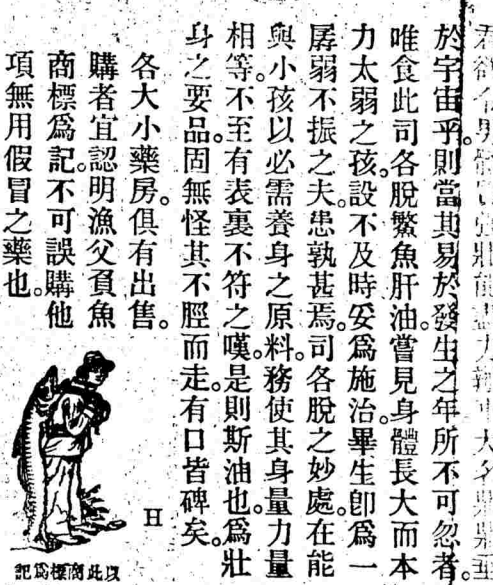 於宇宙乎。則當其易於發生之年所不可忽者。
唯食此司各脫繁魚肝油。嘗見身體長大而本
力太弱之孩。設不及時妥爲施治。畢生卽爲一
孱弱不振之夫。患孰甚焉。司各脫之妙處。在能
與小孩以必需養身之原料。務使其身量力量
相等。不至有表裏不符之嘆。是則斯油也。爲壯
身之要品。固無怪其不脛而走。有口皆碑矣。
各大小藥房。俱有出售。
購者宜認明漁父負魚
商標爲記。不可誤購他
項無用假冒之藥也。
H
以此商標爲記